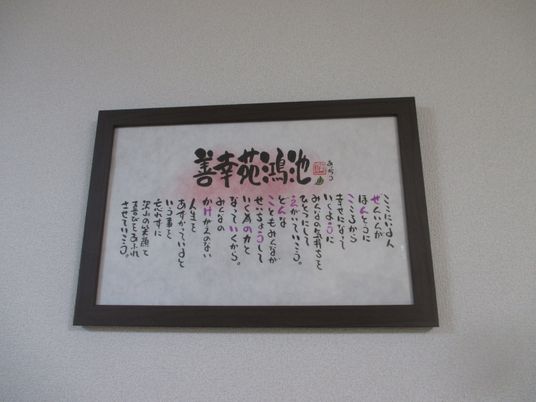 善幸苑鴻池
ここにいる人
ぜんいんが
ほんとうに
こころから
幸せになって
いくように
みんなの気持ちを
ひとつにして
えがいていこう。
どんな
こともみんなが
せいちょうして
いくための力と
なっていくから。
みんなの
かけがえのない
人生を
あずかっていると
いう事を
忘れずに
沢山の笑顔と
喜びをあふれ
させていこう。